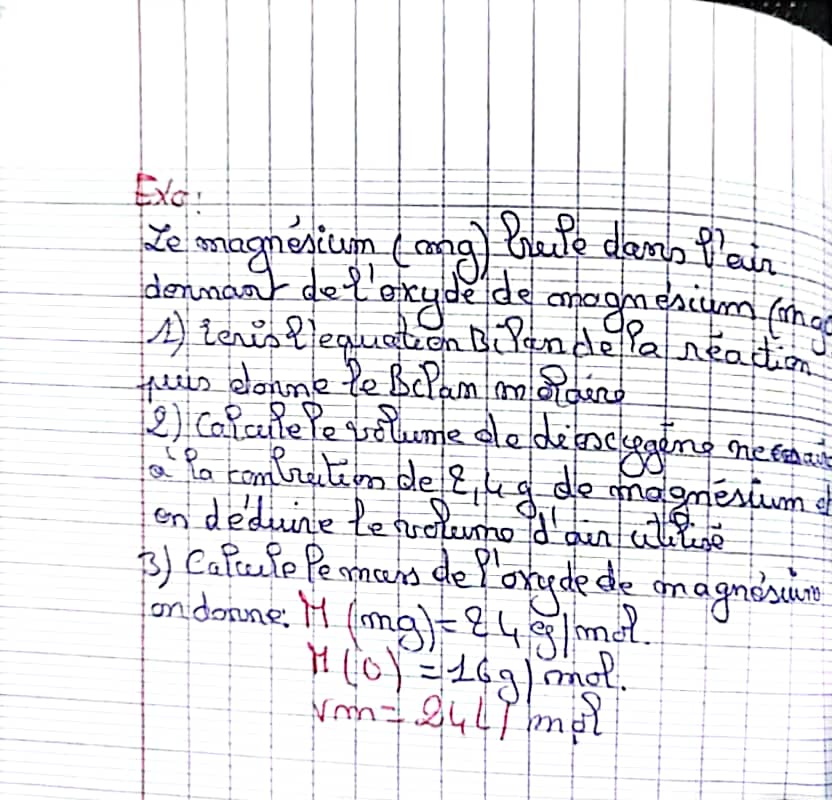 Exo:
Le magnésium (mg) brule dans l'air
donnant de l'oxyde de magnésium (mgo
1) écris l'equation Bilan de la réaction
puis donne le Bilan molaire
2) Calcule le volume de dioxygène necessair
à la combustion de 2,4g de magnésium
en déduire le volume d'air utilisé
3) Calcule le mass de l'oxyde de magnésium
on donne: M (mg) = 24g/mol.
M(O) = 16g/mol.
Vm = 24L/mol